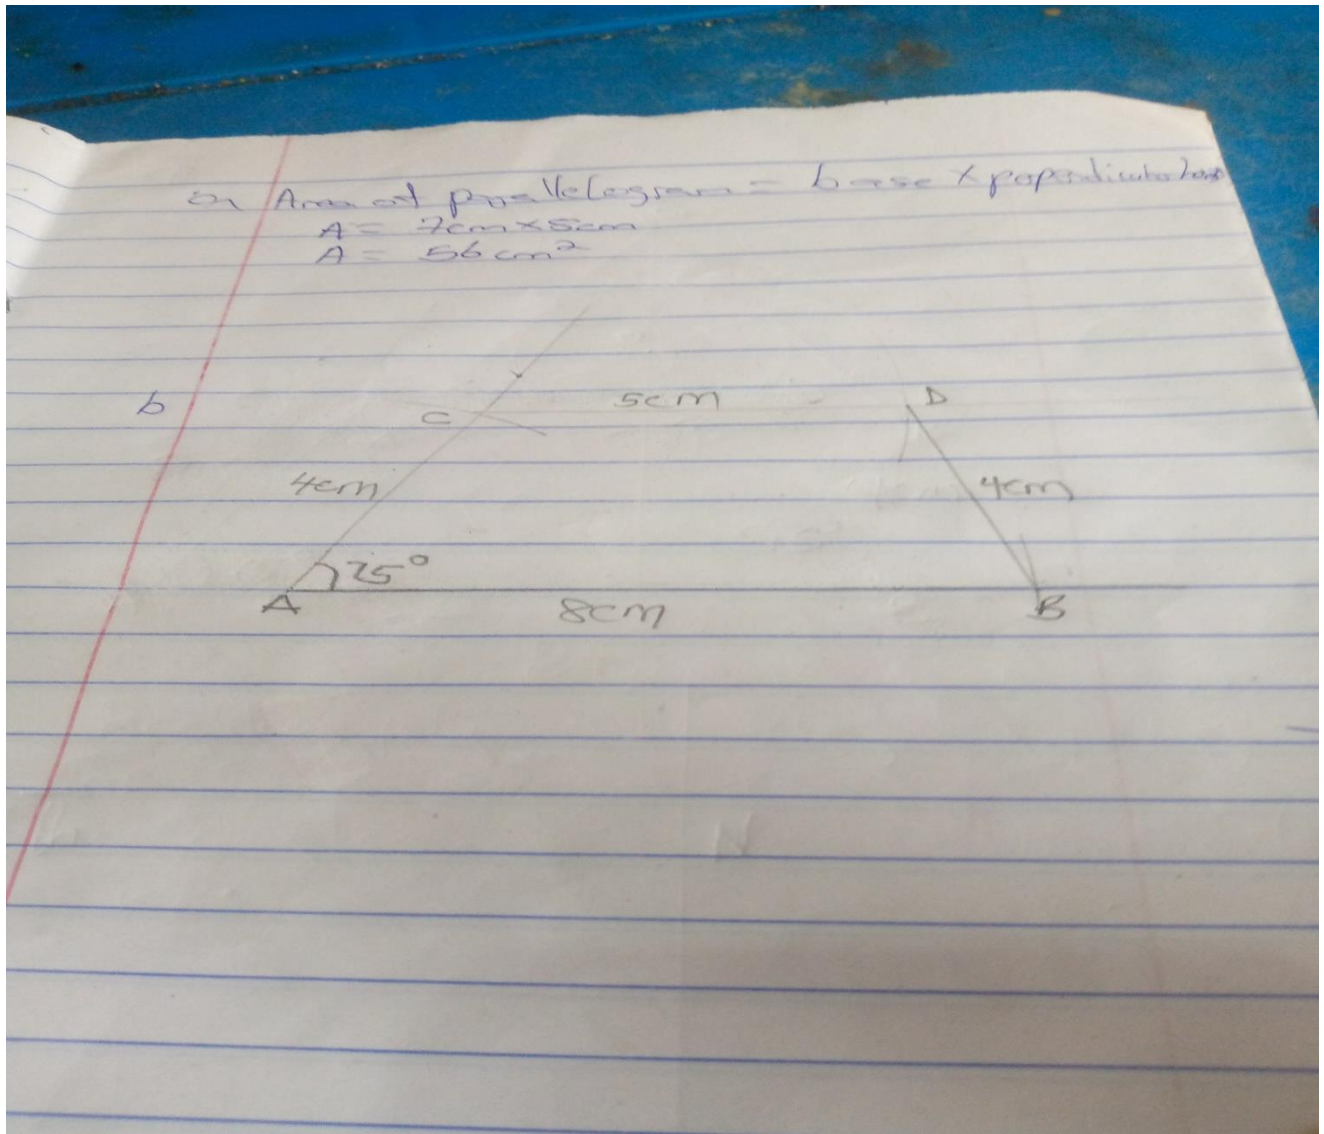 a Area of parallelogram = base × papendicular
A = 7cm × 8cm
A = 56 cm²
b
C 5cm D
4cm 4cm
75°
A 8cm B